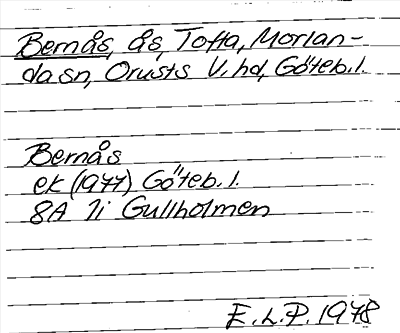 Bernås, ås, Tofta, Morlan-
da sn, Orusts V. hd, Göteb. l.
Bernås
ek (1977) Göteb. l.
8A 7i Gullholmen
E.L.P. 1978